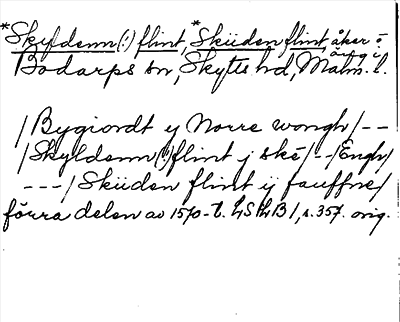 *Skyldenn(!) flint, *Skiiden flint, åker o. äng i
Bodarps sn, Skytts hd, Malm. l.
/Bygiordt y Norre wongh/--
/Skyldenn(!) flint j ske/--/Engh/
---/Skiiden flint ij fauffne/
förra delen av 1570-t. LSLB1, s. 357. orig.